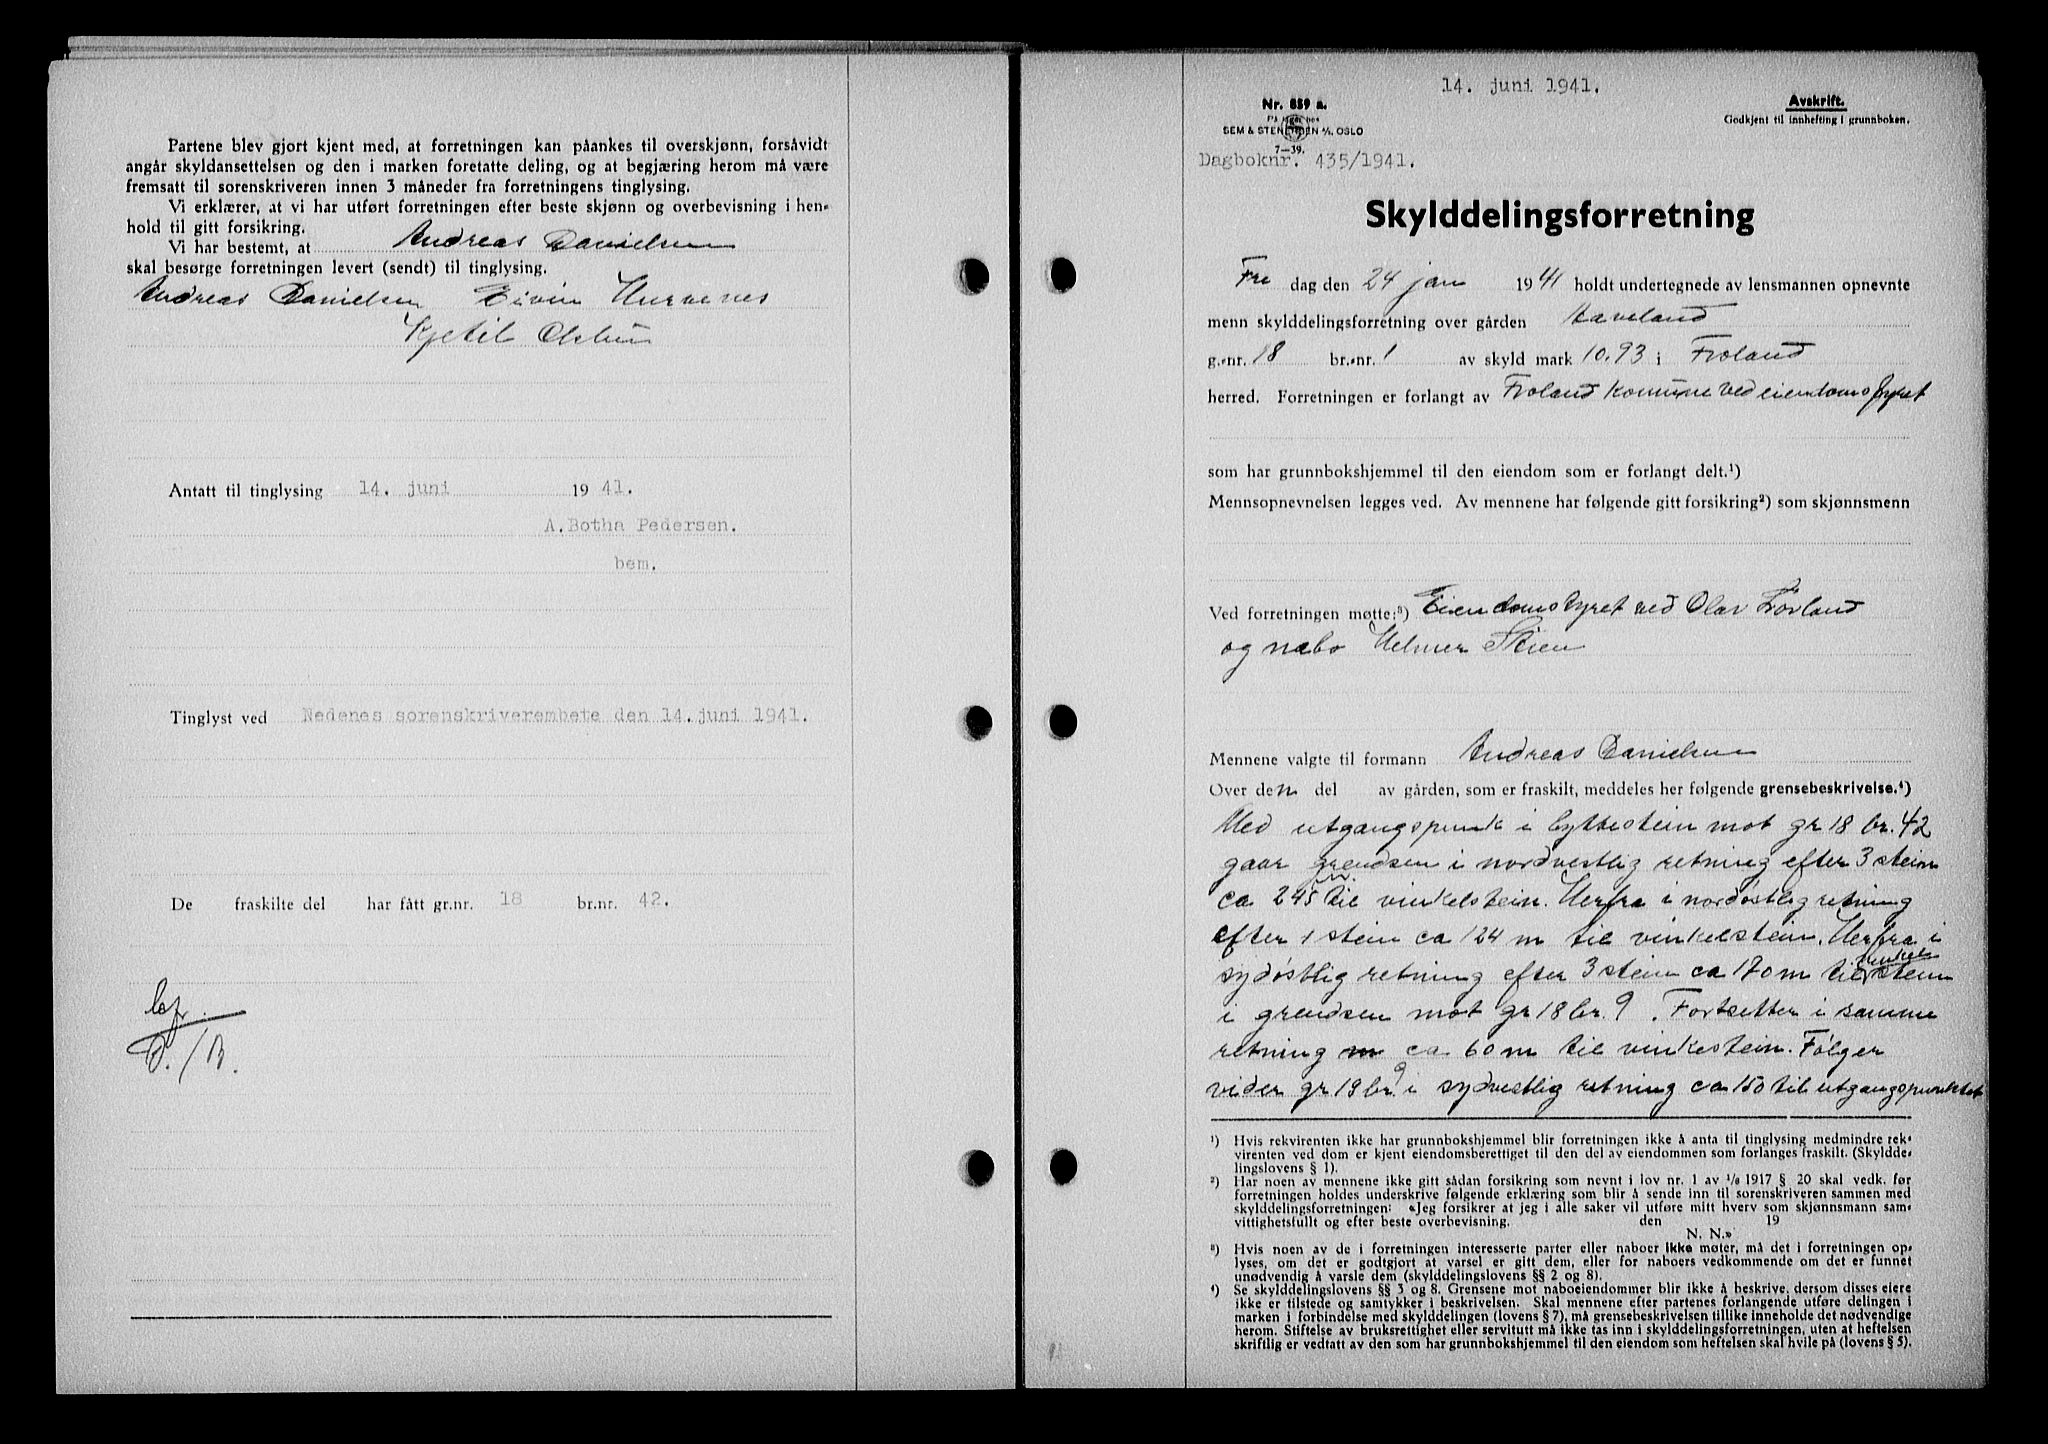 Partene blev gjort kjent med, at forretningen kan påankes til overskjønn, forsåvidt
angår skyldansettelsen og den i marken foretatte deling, og at begjæring herom må være
fremsatt til sorenskriveren innen 3 måneder fra forretningens tinglysing.
Vi erklærer, at vi har utført forretningen efter beste skjønn og overbevisning i hen-
hold til gitt forsikring.
Vi har bestemt, at Andreas Danielsen
skal besørge forretningen levert (sendt) til tinglysing.
Andreas Danielsen Eivin Hurvenes
Kjetil Olsbu
Antatt til tinglysing 14. juni 1941.
A. Botha Pedersen.
bem.
Tinglyst ved Nedenes sorenskriverembete den 14. juni 1941.
De fraskilte del har fått gr.nr. 18 br.nr. 42.
14. juni 1941.
Nr. 859 a.
På lager hos
SEM & STENERSEN A/S, OSLO
7-39.
Avskrift.
Godkjent til innhefting i grunnboken.
Dagboknr. 435/1941.
Skylddelingsforretning
Fre dag den 24 jan 1941 holdt undertegnede av lensmannen opnevnte
menn skylddelingsforretning over gården Haveland
g.-nr. 18 br.-nr. 1 av skyld mark 10.93 i Froland
herred. Forretningen er forlangt av Froland Komune ved eiendomsstyret
som har grunnbokshjemmel til den eiendom som er forlangt delt.¹)
Mennsopnevnelsen legges ved. Av mennene har følgende gitt forsikring²) som skjønnsmenn
Ved forretningen møtte:³) Eiendomstyret ved Olav Frøland
og nabo Helmer Skien
Mennene valgte til formann Andreas Danielsen
Over den del av gården, som er fraskilt, meddeles her følgende grensebeskrivelse.⁴)
Med utgangspunk i byttestein mot gr 18 br. 42
gaar grendsen i nordvestlig retning efter 3 steiner
ca 245 m. til vinkelstein. Herfra i nordøstlig retning
efter 1 stein ca 124 m til vinkelstein. Herfra i
sydøstlig retning efter 3 stein ca 170 m til vinkelstein
i grendsen mot gr 18 br. 9. Fortsetter i samme
retning m ca 60 m til vinkestein. Følger
vider gr 18 br. 9 i sydvestlig retning ca 150 til utgangspunktet
¹) Hvis rekvirenten ikke har grunnbokshjemmel blir forretningen ikke å anta til tinglysing medmindre rek-
virenten ved dom er kjent eiendomsberettiget til den del av eiendommen som forlanges fraskilt. (Skyldde-
lingslovens § 1).
²) Har noen av mennene ikke gitt sådan forsikring som nevnt i lov nr. 1 av 1/6 1917 § 20 skal vedk. før
forretningen holdes underskrive følgende erklæring som blir å sende inn til sorenskriveren sammen med
skylddelingsforretningen: «Jeg forsikrer at jeg i alle saker vil utføre mitt hverv som skjønnsmann sam-
vittighetsfullt og efter beste overbevisning. den 19
N. N.»
³) Hvis noen av de i forretningen interesserte parter eller naboer ikke møter, må det i forretningen op-
lyses, om det er godtgjort at varsel er gitt dem, eller for naboers vedkommende om det er funnet
unødvendig å varsle dem (skylddelingslovens §§ 2 og 8).
⁴) Se skylddelingslovens §§ 3 og 8. Grensene mot naboeiendommer blir ikke å beskrive, dersom disses eiere
ikke er tilstede og samtykker i beskrivelsen. Skal mennene efter partenes forlangende utføre delingen i
marken i forbindelse med skylddelingen (lovens § 7), må grensebeskrivelsen tillike inneholde det nødvendige
herom. Stiftelse av bruksrettighet eller servitutt må ikke tas inn i skylddelingsforretningen, uten at heftelsen
skriftlig er vedtatt av den som har grunnbokshjemmel til den eiendom som heftelsen skal hvile på (lovens § 5).